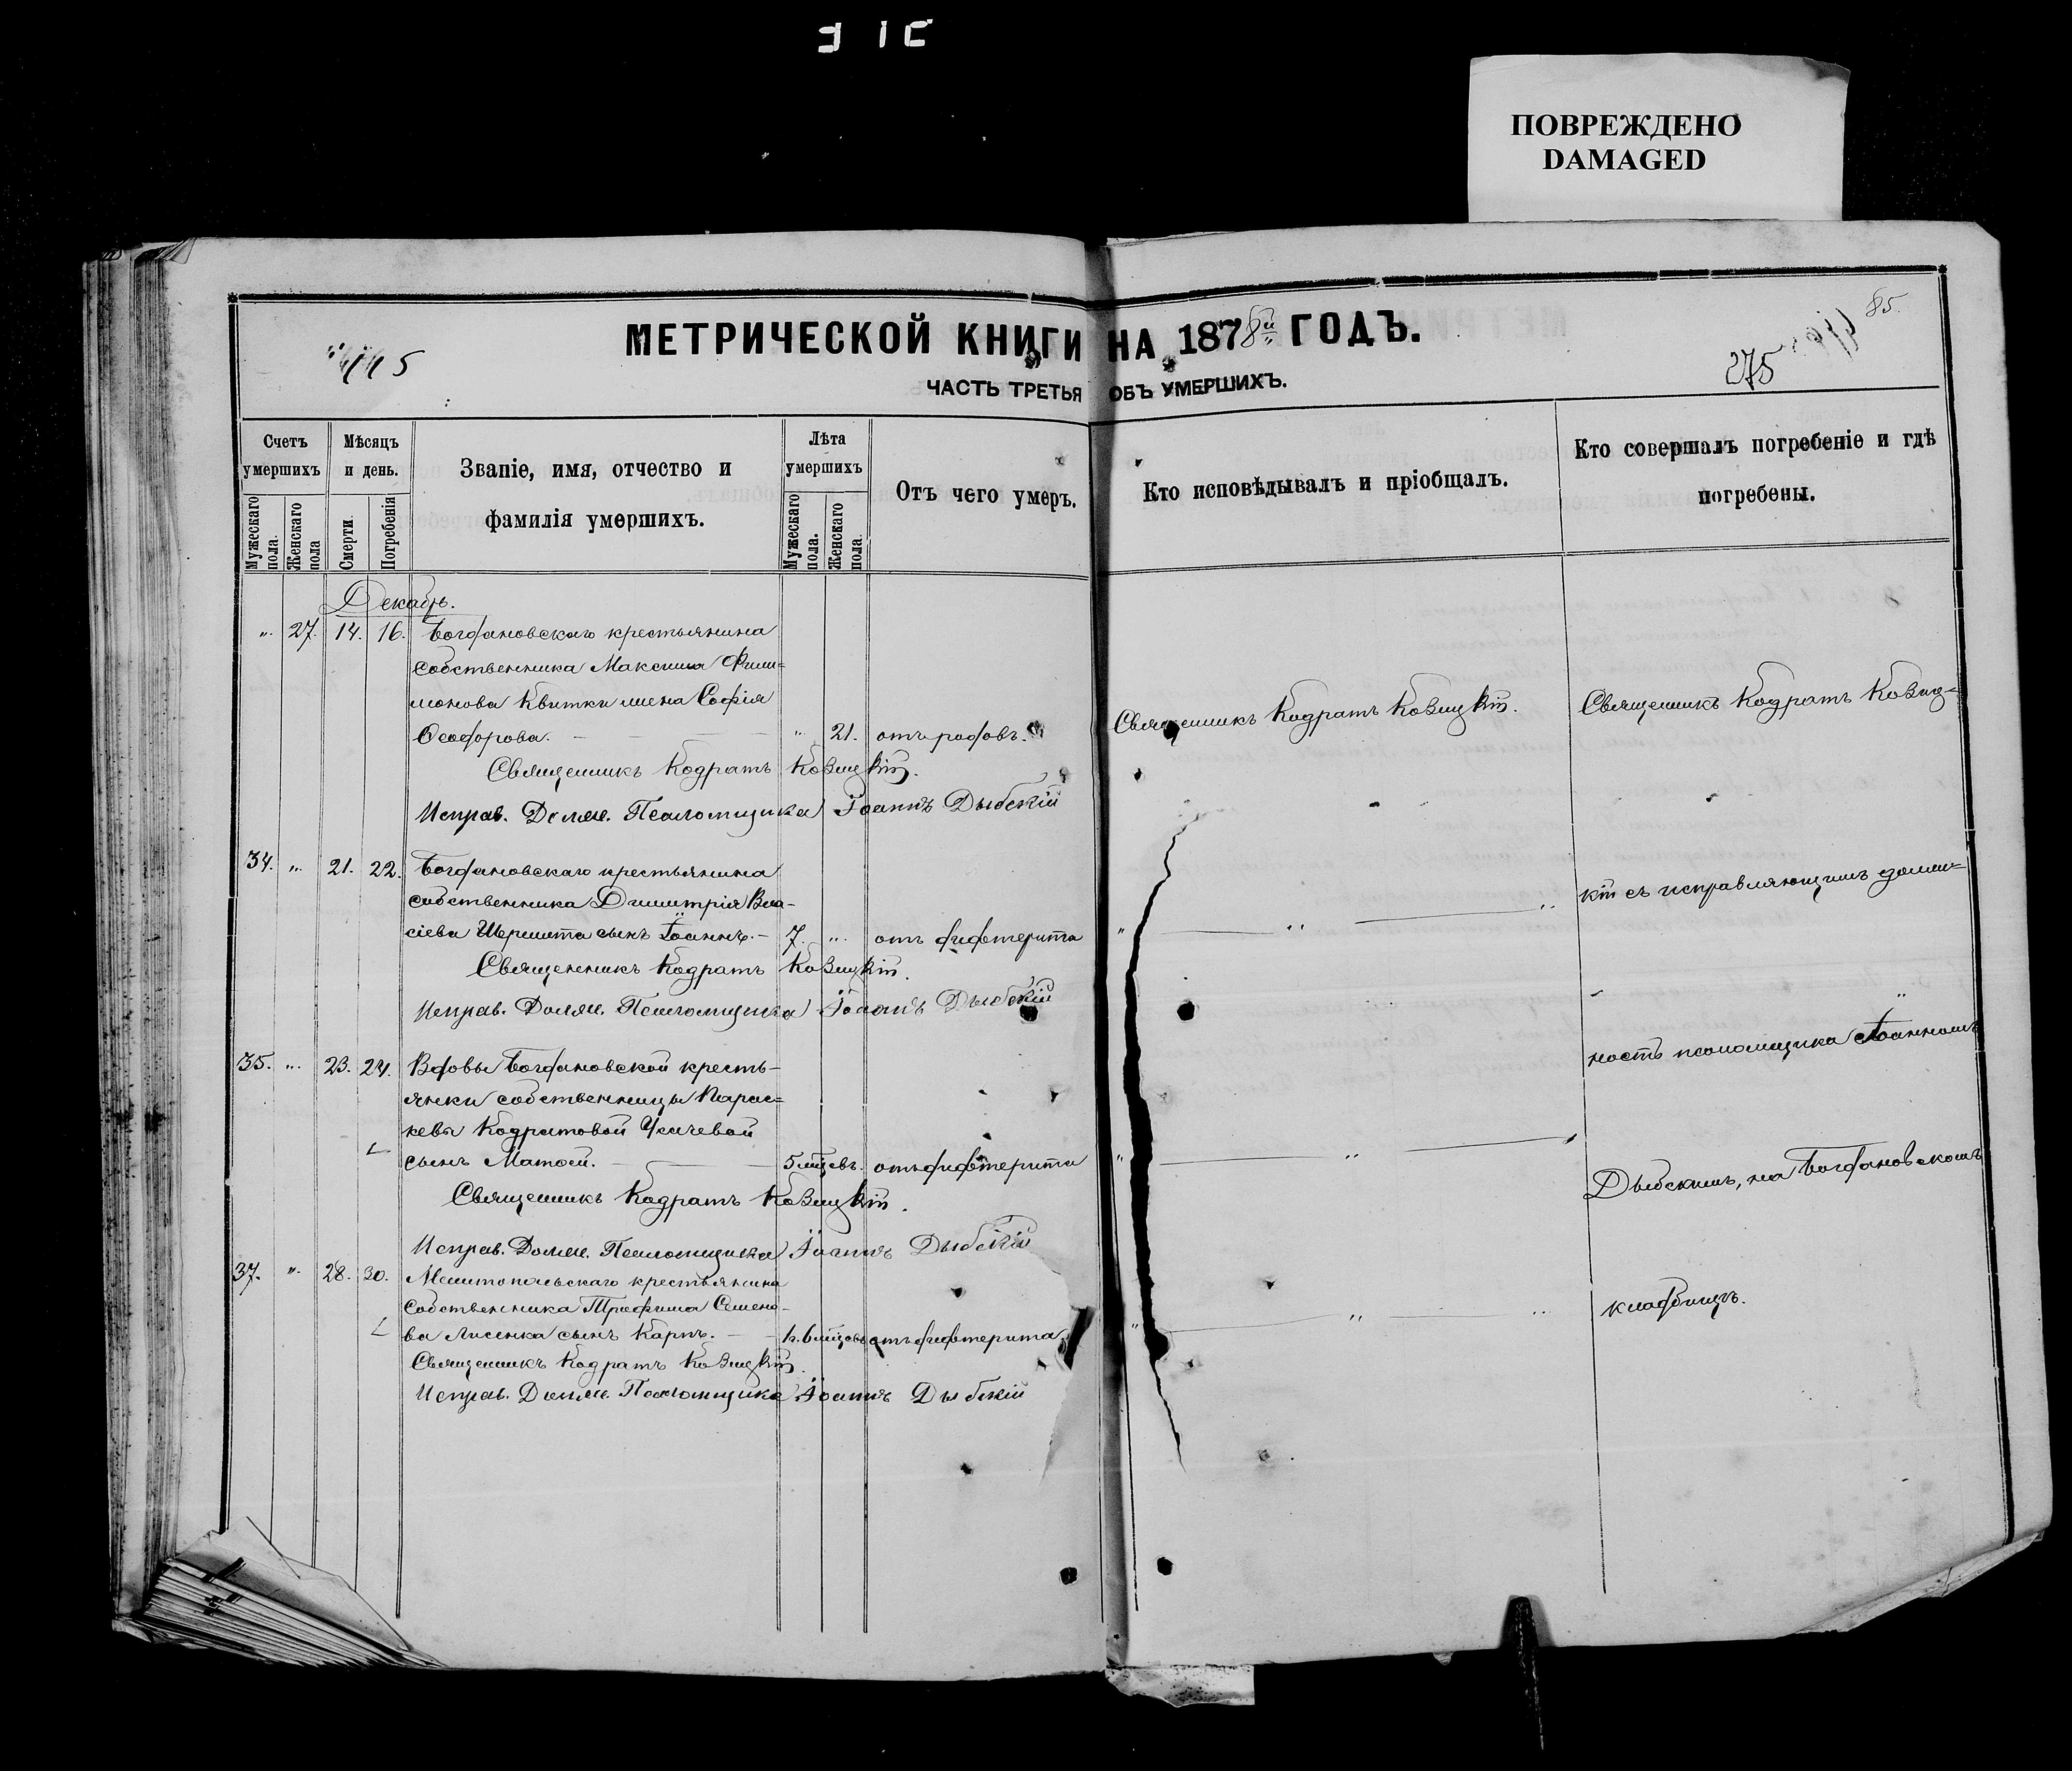 ПОВРЕЖДЕНО
DAMAGED
МЕТРИЧЕСКОЙ КНИГИ НА 1878й ГОДЪ.
ЧАСТЬ ТРЕТЬЯ ОБЪ УМЕРШИХЪ.
85.
275
Счетъ умершихъ
Мужескаго пола.
Женскаго пола
Мѣсяцъ и день.
Смерти.
Погребенія
Званіе, имя, отчество и
фамилія умершихъ.
Лѣта умершихъ
Мужескаго пола.
Женскаго пола.
Отъ чего умеръ.
Кто исповѣдывалъ и пріобщалъ.
Кто совершалъ погребеніе и гдѣ
погребены.
Декабрь.
„ 27. 14. 16. Богдановскаго крестьянина
собственника Максима Фили=
монова Квитки жена Софія
Ѳеодорова. — „ 21. отъ родовъ.
Священникъ Кодратъ Козицкій.
Исправ. Должн. Псаломщика Іоаннъ Дыбскій
34. „ 21. 22. Богдановскаго крестьянина
собственника Димитрія Вла-
сіева Шеремета сынъ Іоаннъ. — 7. „ отъ дифтерита
Священникъ Кодратъ Козицкій.
Исправ. Должн. Псаломщика Іоаннъ Дыбскій
35. „ 23. 24. Вдовы Богдановской кресть-
янки собственницы Парас=
кевы Кодратовой Усачевой
сынъ Матѳей. — 5 мѣсяцевъ. отъ дифтерита
Священникъ Кодратъ Козицкій.
Исправ. Должн. Псаломщика Іоаннъ Дыбскій
37. „ 28. 30. Мелитопольскаго крестьянина
собственника Трофима Симено-
ва Лисенка сынъ Карпъ. — отъ дифтерита
Священникъ Кодратъ Козицкій.
Исправ. Должн. Псаломщика Іоаннъ Дыбскій
Священникъ Кодратъ Козицкій.
„ — „ — „
„ — „ — „
„ — „ — „
Священникъ Кодратъ Козиц-
кій съ исправляющимъ долж=
ность псаломщика Іоанномъ
Дыбскимъ, на Богдановскомъ
кладбищѣ.